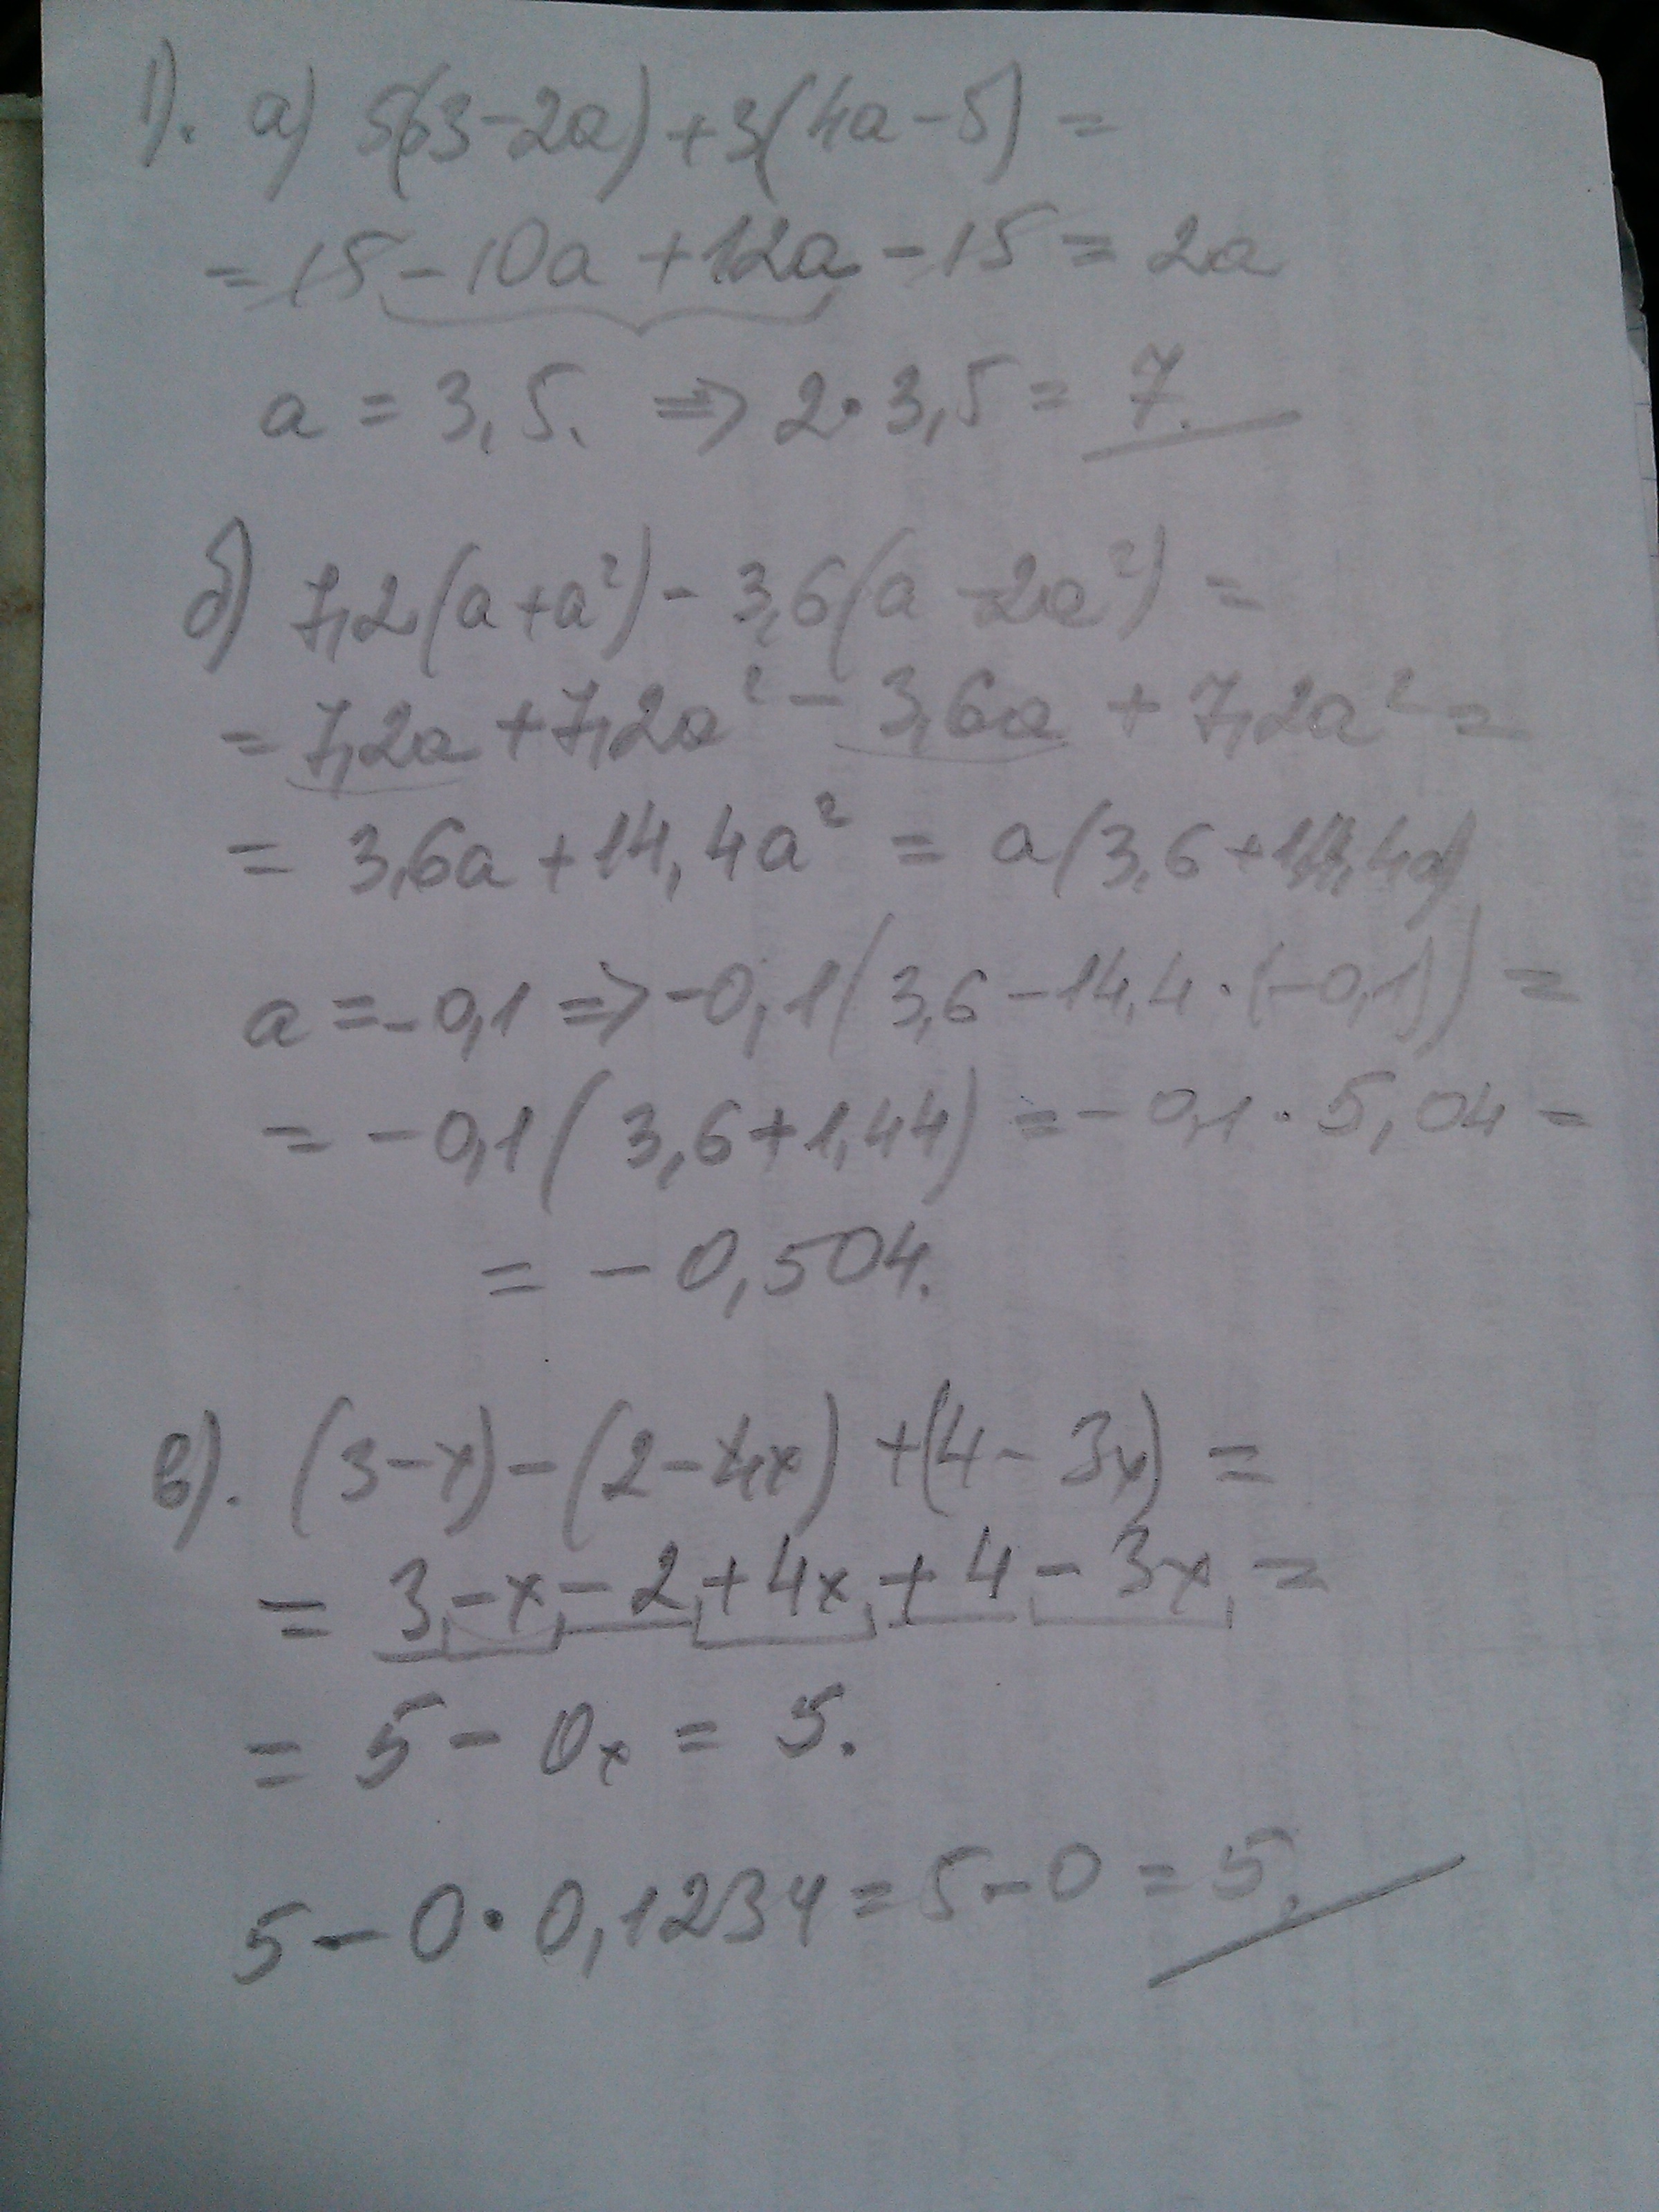 1). а) 5(3-2a)+3(4a-5)=
=15-10a+12a-15=2a
a=3,5. ⇒ 2·3,5=7.
б) 7,2(a+a²)-3,6(a-2a²)=
=7,2a+7,2a²-3,6a+7,2a²=
=3,6a+14,4a²=a(3,6+14,4a)
a=-0,1⇒-0,1(3,6-14,4·(-0,1))=
=-0,1(3,6+1,44)=-0,1·5,04=
=-0,504.
в). (3-x)-(2-4x)+(4-3x)=
=3-x-2+4x+4-3x=
=5-0x=5.
5-0·0,1234=5-0=5.